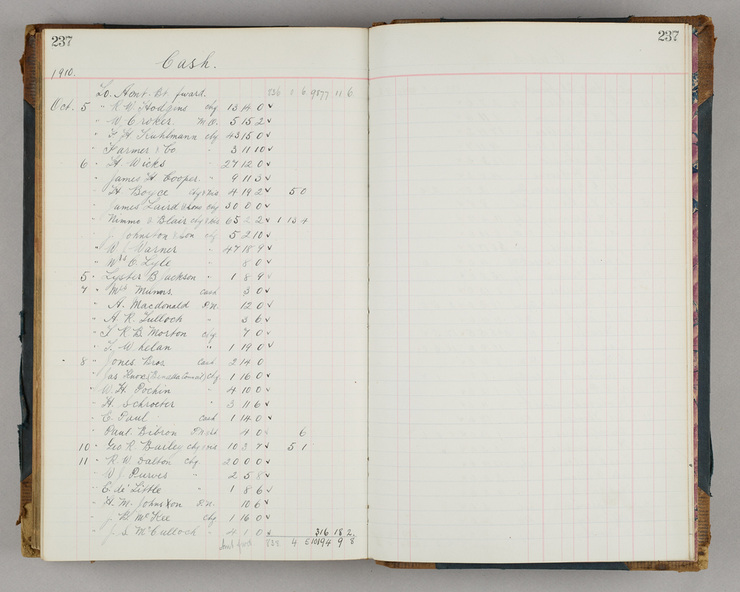 237
237
Cash.
1910.
To Amt. Bt fward. 836 2 6 9877 11 6
Oct. 5 " R W Hodgins chq 13 14 0
" W. Croker. M.O. 5 15 2
" F H Kuhlmann chq 43 15 0
" Farmer & Co " 3 11 10
6 " H Wicks " 27 12 0
" James H Cooper " 9 11 3
" H Boyce 4 19 2 5 0
" James Laird & Sons chq 30 0 0
" Nimmo & Blair 65 2 2 1 13 4
" J. Johnston & Son chq 5 2 10
" R J Warner " 47 18 9
" Mrs O. Lyle " 8 0
5 " Lyster B Jackson " 1 8 9
7 " Mrs Munns. cash 3 0
" A. Macdonald P.N. 12 0
" A. R. Tulloch " 3 6
" T R B Morton chq 7 0
" T. Whelan " 1 19 0
8 " Jones Bros cash 2 14 0
" Jas Knox chq 1 16 0
" W. H. Pochin 4 10 0
" H. Schroeter " 3 11 6
" C Paul cash 1 14 0
" Paul Bibron 4 0 6
10 " Geo R. Bailey 10 3 7 5 1
11 " R W Dalton chq. 20 0 0
" W J Purves " 2 5 8
" C. de Little " 1 8 6
" H. M. Johnston P.N. 10 6
" J H McKee chq 1 16 0
" J. S McCulloch " 4 1 0 316 18 2.
Amt fwd 838 4 5 10194 9 8